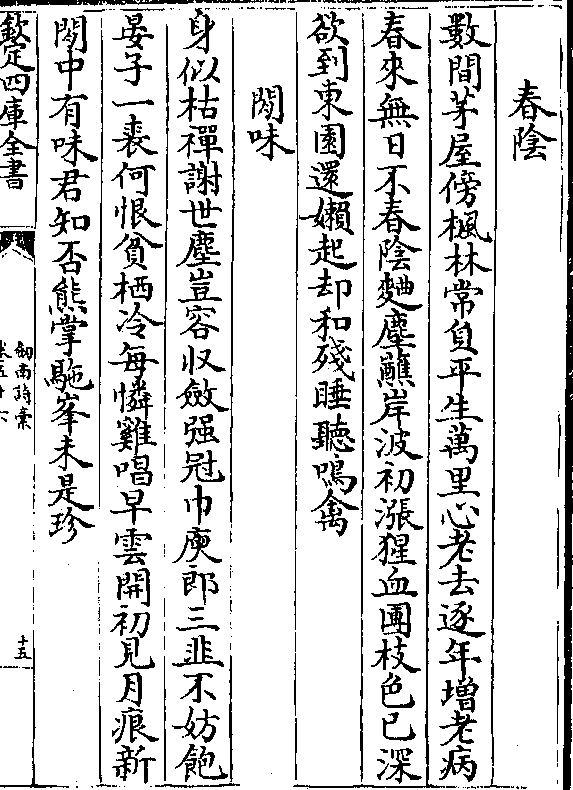 春陰
數間茅屋傍楓林常負平生萬里心老去逐年增老病
春來無日不春陰麯塵蘸岸波初漲猩血團枝色已深
欲到東園還嬾起却和殘睡聽鳴禽
閑味
身似枯禪謝世塵豈容收斂强冠巾庾郎三韭不妨飽
晏子一裘何恨貧栖冷每憐雞唱早雲開初見月痕新
閑中有味君知否熊掌駞峯未是珍
欽定四庫全書
劒南詩槀
卷五十六
十五